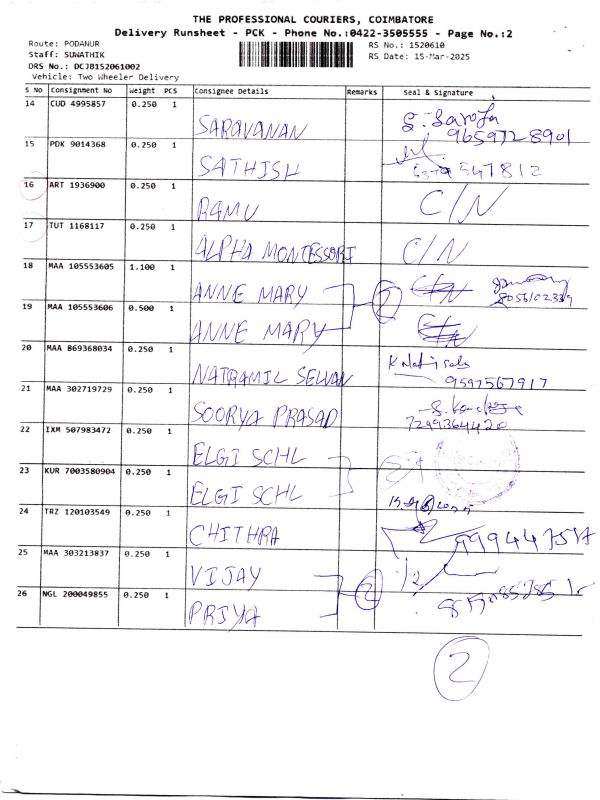 THE PROFESSIONAL COURIERS, COIMBATORE
Delivery Runsheet - PCK - Phone No.:0422-3505555 - Page No.:2
Route: PODANUR RS No.: 1520610
Staff: SUWATHIK RS Date: 15-Mar-2025
DRS No.: DCJB152061002
Vehicle: Two Wheeler Delivery
S No Consignment No Weight PCS Consignee Details Remarks Seal & Signature
14 CUD 4995857 0.250 1 SARAVANAN S. Saroja
9659728901
15 PDK 9014368 0.250 1 SATHISH 547812
16 ART 1936900 0.250 1 RAMU C/N
17 TUT 1168117 0.250 1 ALPHA MONTESSORI C/N
18 MAA 105553605 1.100 1 ANNE MARY 2 C/N
19 MAA 105553606 0.500 1 ANNE MARY C/N
20 MAA 869368034 0.250 1 NATRAMIL SELVAN
9597567917
21 MAA 302719729 0.250 1 SOORYA PRASAD
7299364420
22 IXM 507983472 0.250 1 ELGI SCHL
23 KUR 7003580904 0.250 1 ELGI SCHL
24 TRZ 120103549 0.250 1 CHITHRA
25 MAA 303213837 0.250 1 VIJAY 2
26 NGL 200049855 0.250 1 PRIYA
2